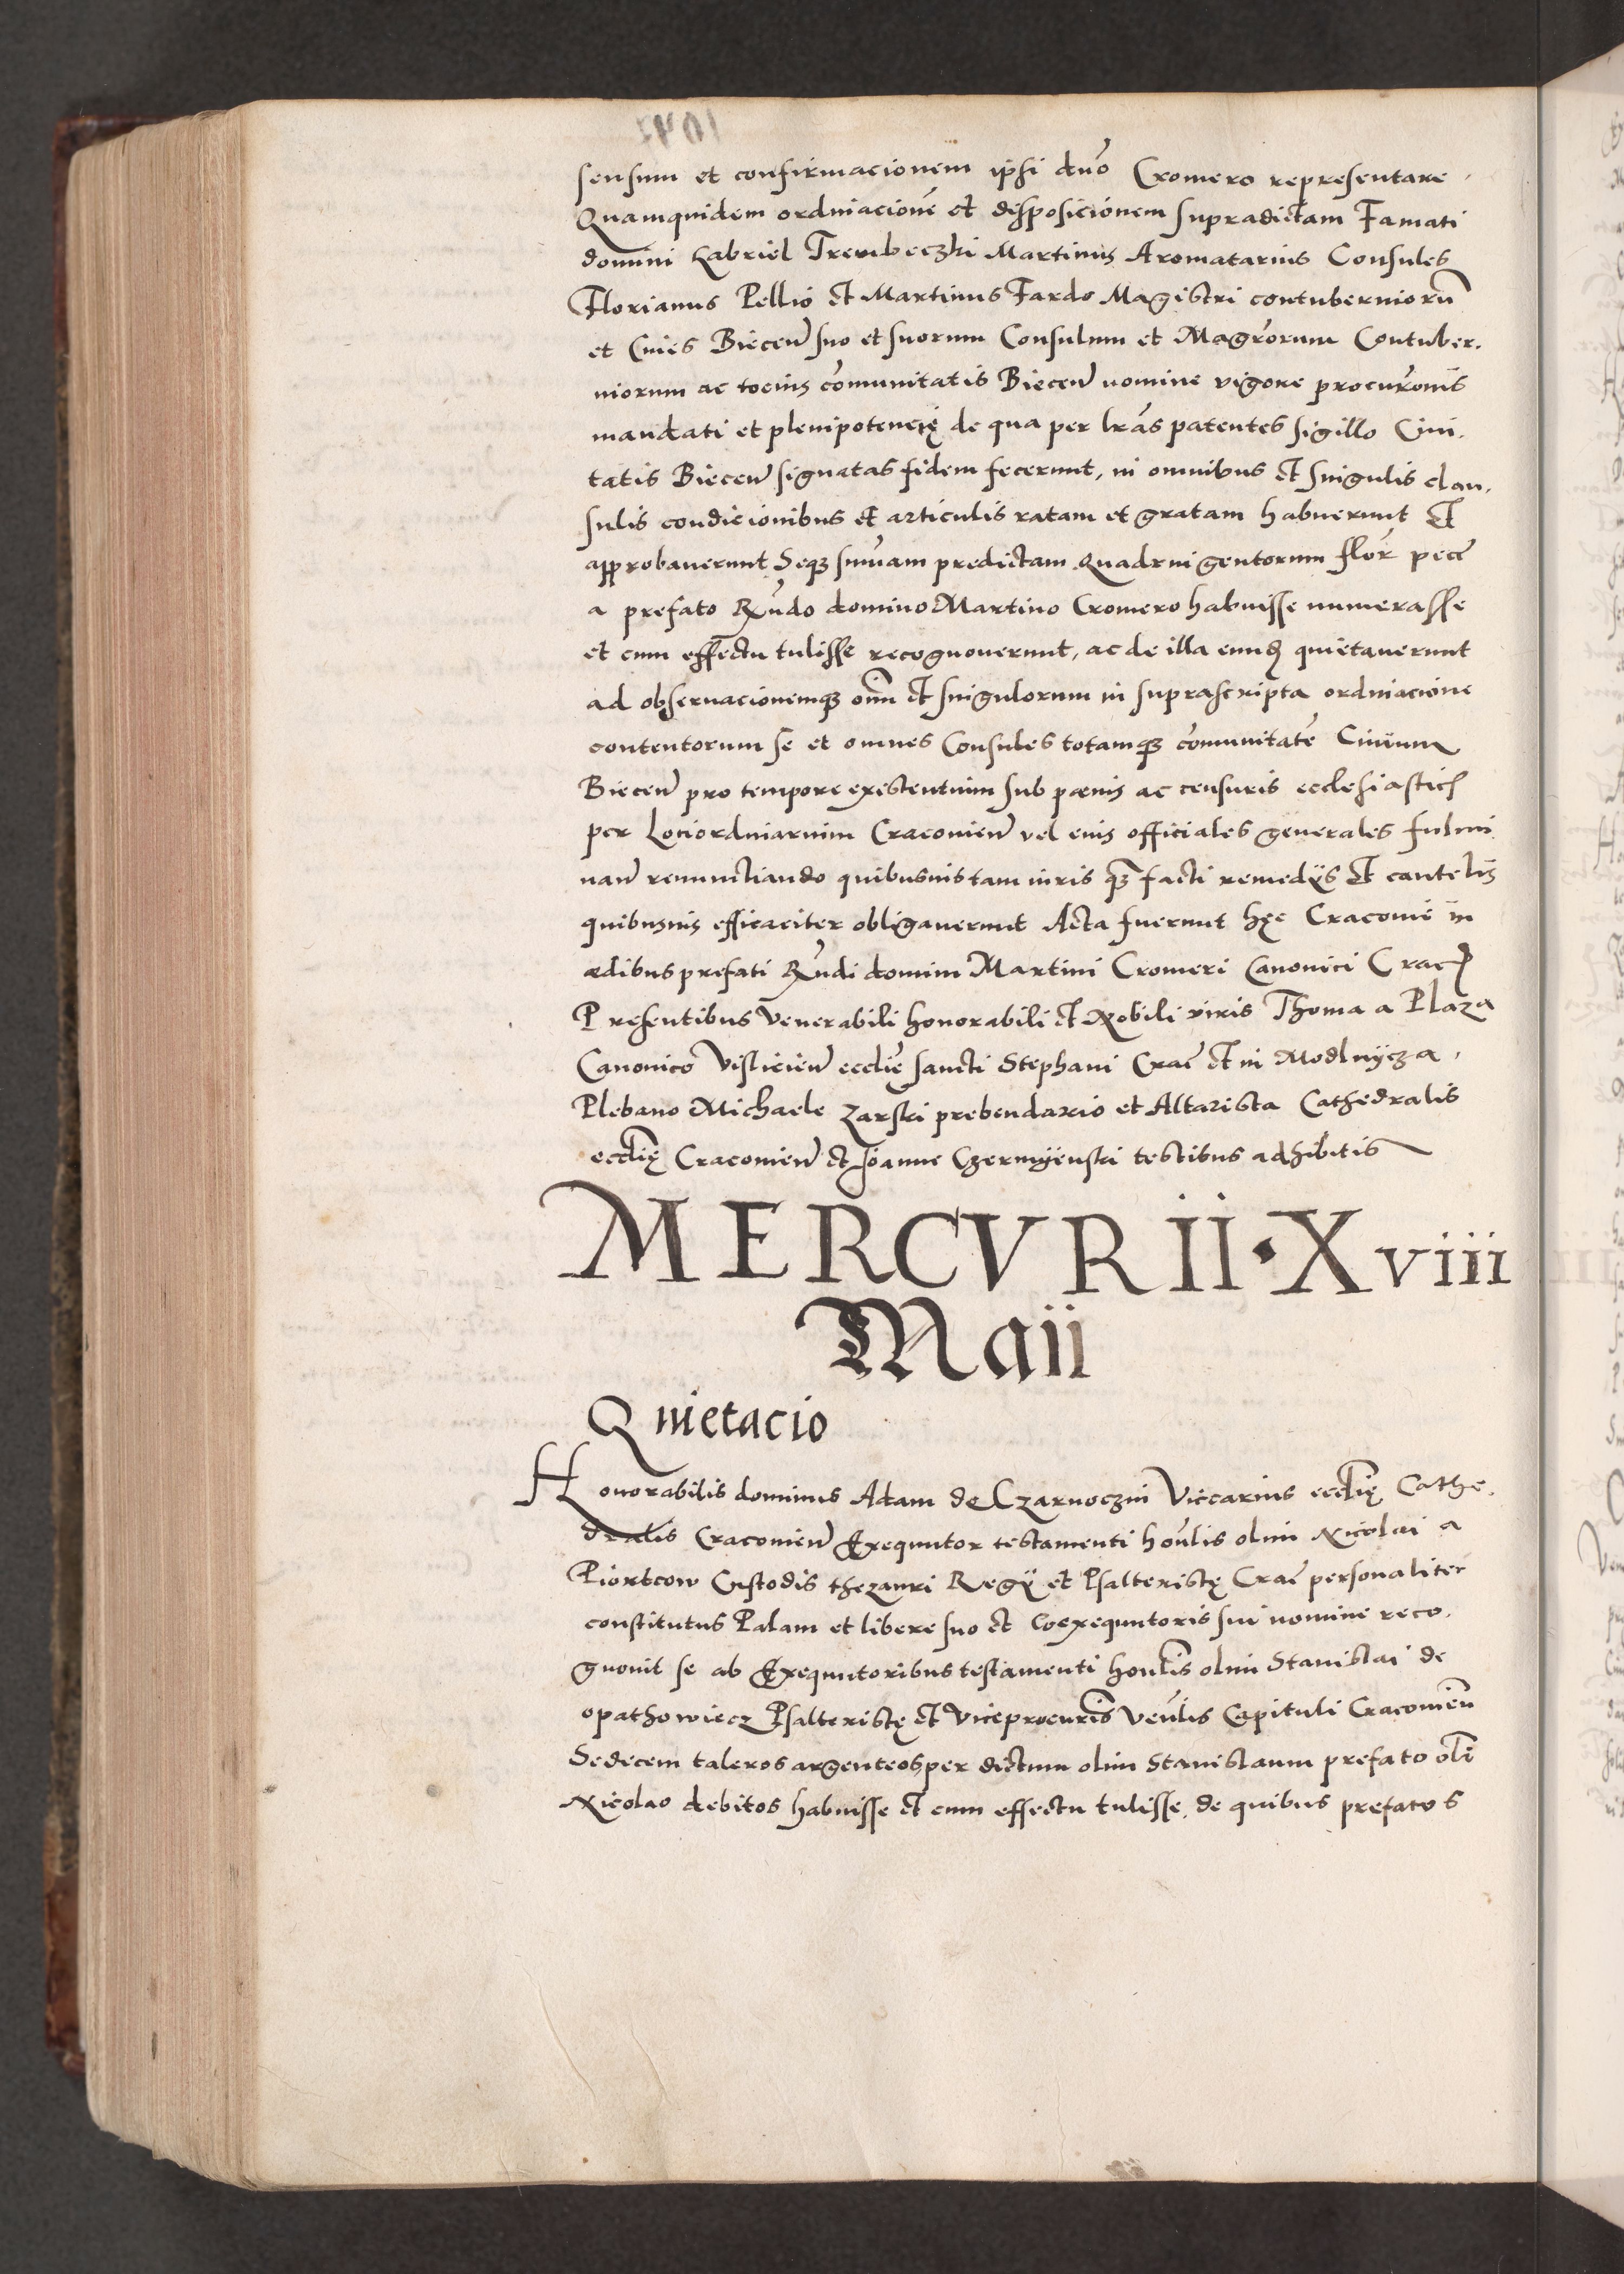 sensum et confirmacionem ipsi dno Cromero representare.
Quamquidem ordinacione et disposicionem supradictam Famati
domini Gabriel Trembeczki Martinus Aromatarius Consules
Florianus Pellio et Martinus Fardo Magistri contuberniorũ
et Cives Biecen suo et suorum Consulum et Magrorum Contuber.
niorum ac tocius comunitatis Biecen nomine vigore procuronis
mandati et plenipotencię de qua per lras patentes sigillo Civi.
tatis Biecen signatas fidem fecerunt, in omnibus et singulis clau.
sulis condicionibus et articulis ratam et gratam habuerunt Et
approbaverunt Seqz sumam predictam Quadringentorum flor pecc
a prefato Rndo domino Martino Cromero habuisse numerasse
et cum effectu tulisse recognoverunt, ac de illa eund quietaverunt
ad observacionemqz oim et singulorum in suprascripta ordinacione
contentorum se et omnes Consules totamqz comunitate Civium
Biecen pro tempore existentium sub pœnis ac censuris ecclesiastic
per Lociordinarium Cracovien vel eius officiales generales fulmi
nan renunctiando quibusvis tam iuris qz facti remedijs Et cautelis
quibusvis efficaciter obligaverunt Acta fuerunt hęc Cracovie in
ædibus prefati Rndi domini Martini Cromeri Canonici Crac
Presentibus Venerabili honorabili et Nobili viris Thoma a Plaza
Canonico Vislicien ecclie sancti Stephani Crac et in Modlnycza.
Plebano Michaele Zarski prebendario et Altarista Cathedralis
ecclię Cracovien et Joanne Czermyenski testibus adhibitis
MERCVRII·Xviii
Maii
Quietacio
Honorabilis dominus Adam de Czarnoczin Viccarius ecclię Cathe.
dralis Cracovien Exequutor testamenti honlis olim Nicolai a
Piortcow Custodis thezauri Regij et Psalteristę Crac personaliter
constitutus Palam et libere suo et Coexequutoris sui nomine reco.
gnovit se ab Exequutoribus testamenti honlis olim Stanislai de
opathowiecz Psalteristę et Viceprocuris Venlis Capituli Cracovien
Sedecem taleros argenteos per dictum olim Stanislaum prefato oli
Nicolao debitos habuisse et cum effectu tulisse, de quibus prefatos